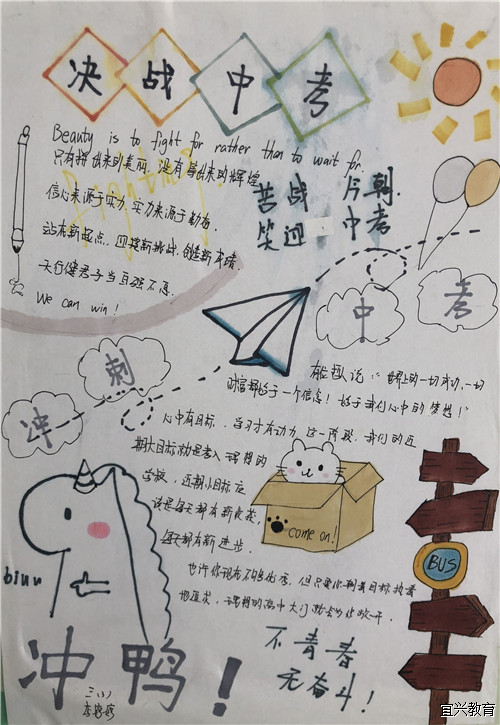 决战中考
Beauty is to fight for rather than to wait for.
只有拼出来的美丽，没有等出来的辉煌
苦战 月朝.
信心来源于实力，实力来源于勤奋
笑迎 中考
站在新起点，迎接新挑战，创造新成绩
天行健君子当自强不息
We can win!
中考
冲刺
有人说："世界上的一切成功，一切
财富都始于一个信念！始于我们心中的梦想！"
心中有目标，学习才有动力 这一阶段，我们的近
期大目标就是考入理想的
学校，近期小目标应
该是每天都有新收获，
每天都有新进步.
come on!
BUS
也许你现在不够优秀，但只要你朝着目标执着
地追求，理想的高中大门就会为你敞开.
biuu
冲鸭！
不青春
无奋斗！
三(1)
宜兴教育